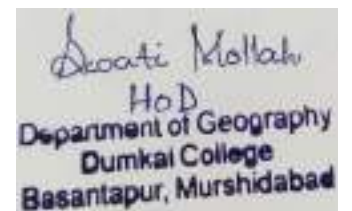 Mollah
HoD
Department of Geography
Dumkal College
Basantapur, Murshidabad